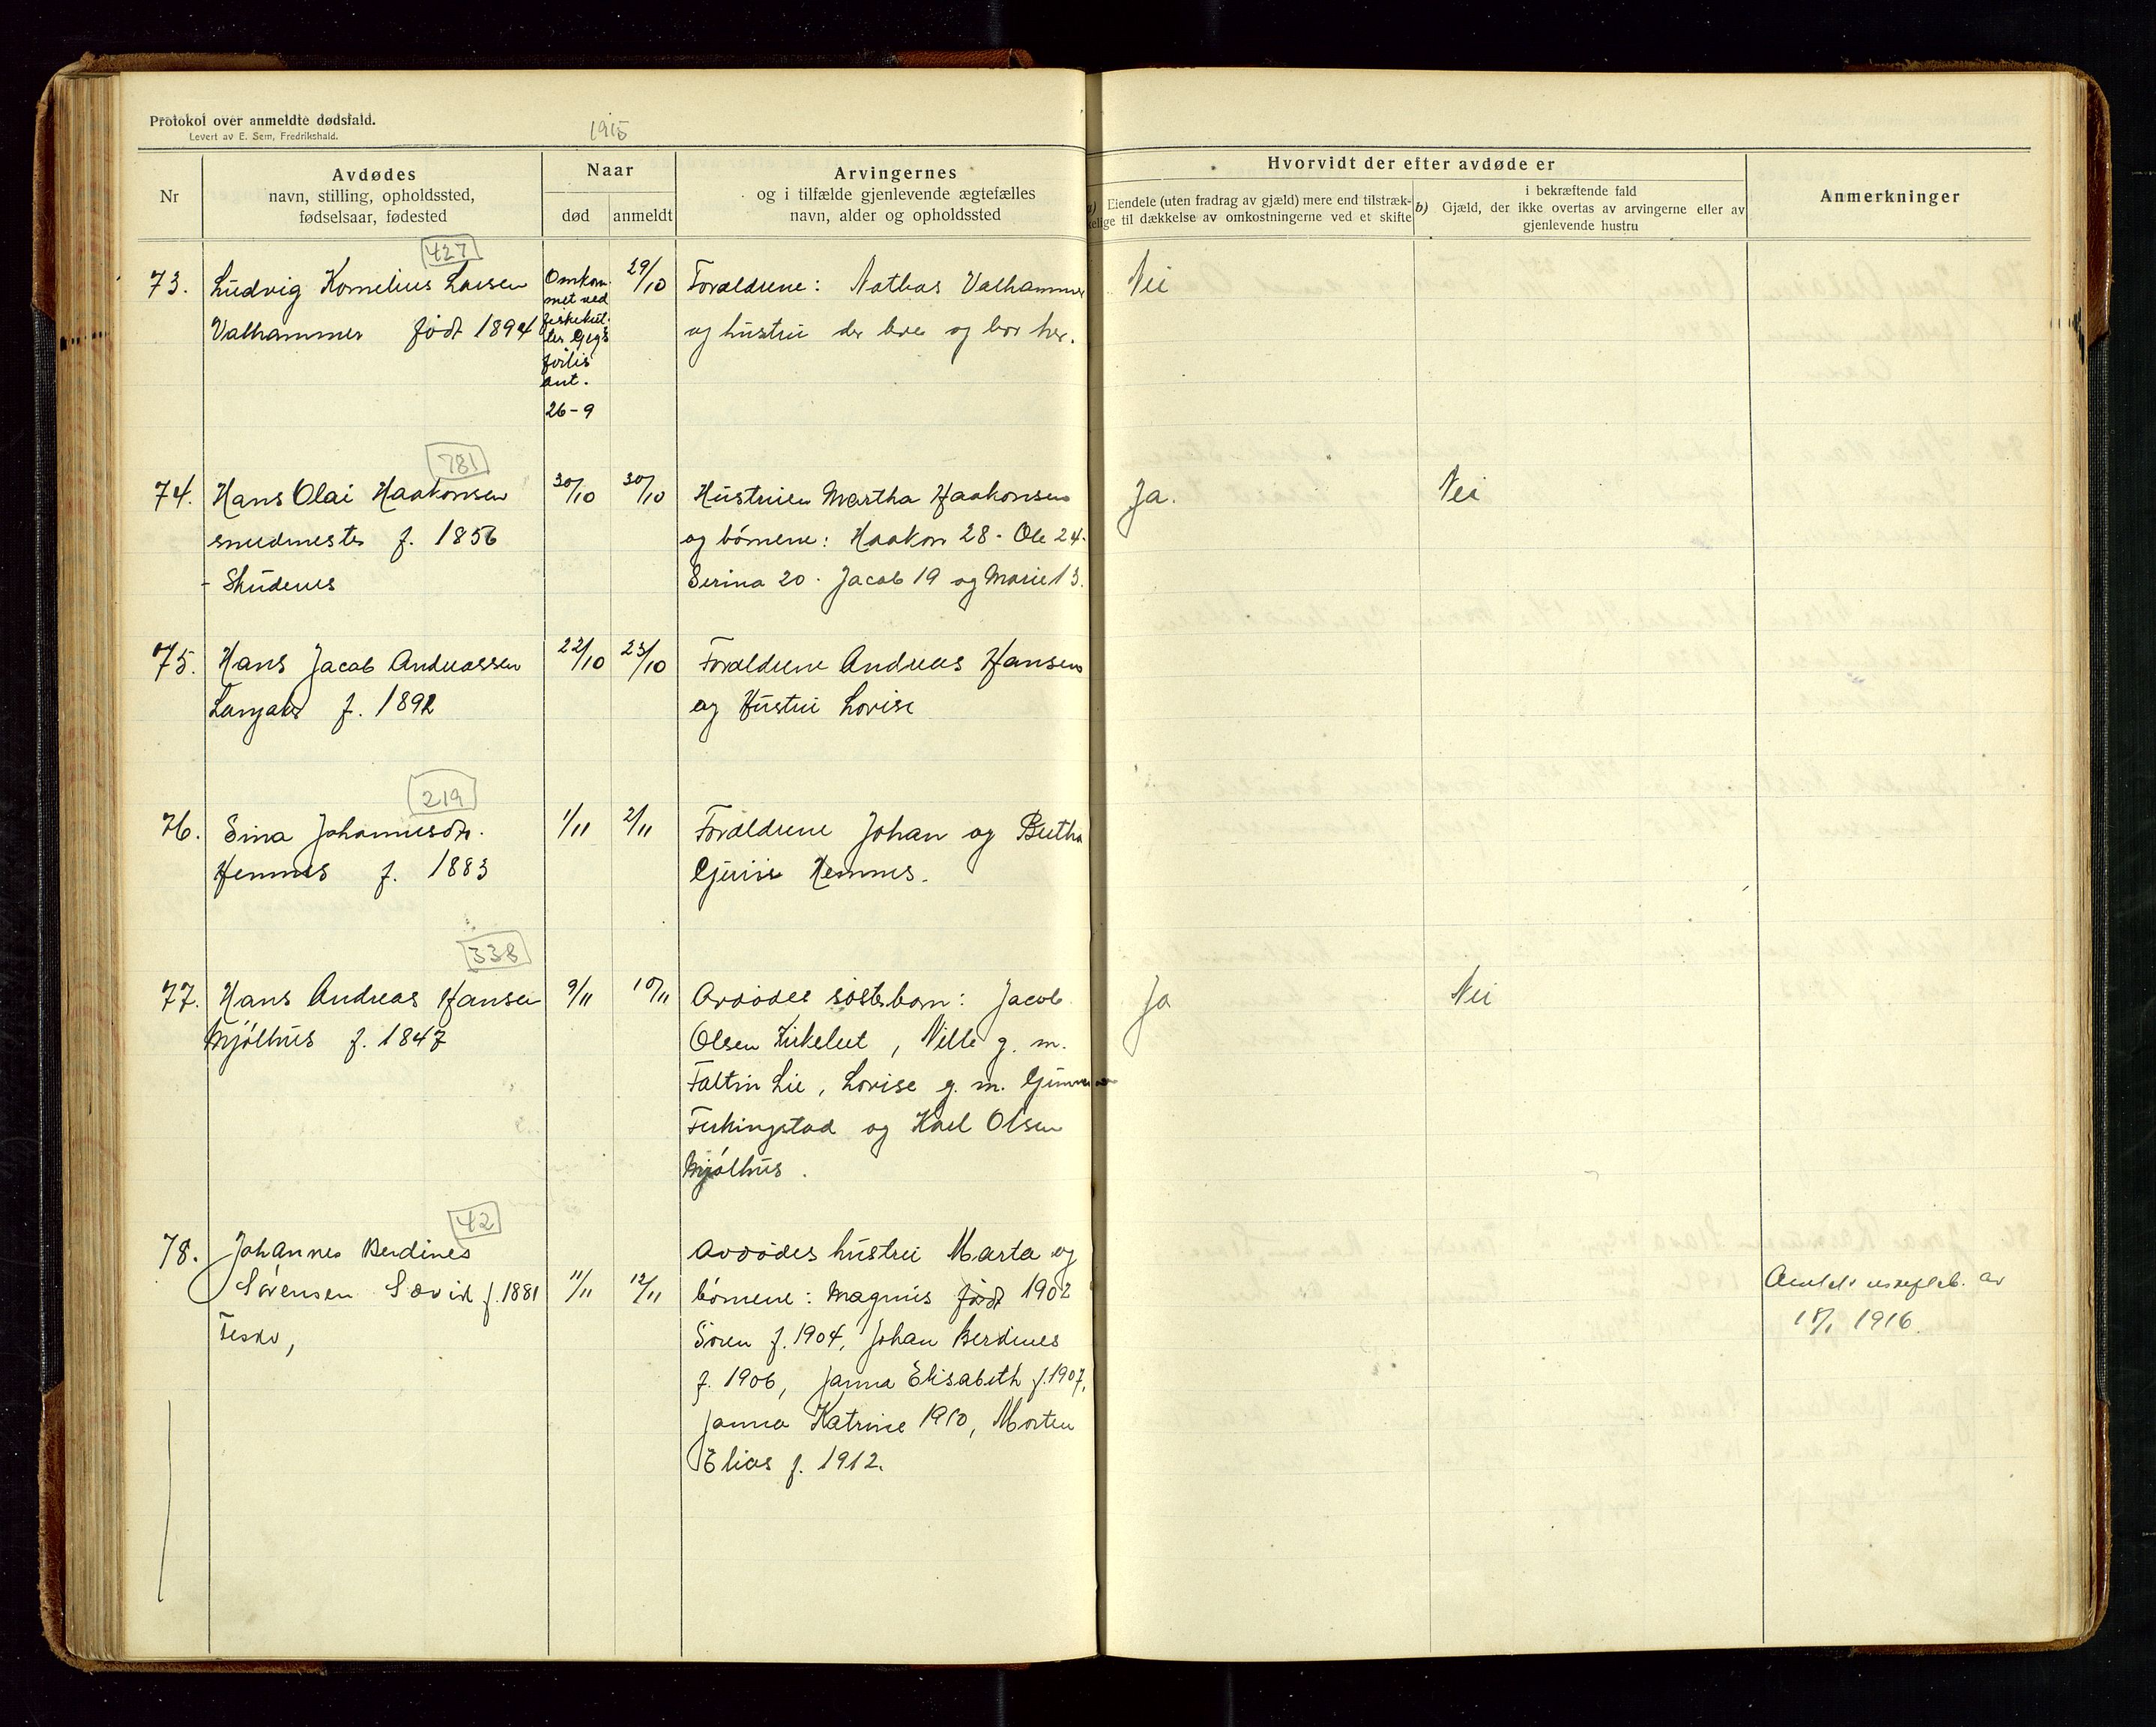 Protokol over anmeldte dødsfald.
Levert av E. Sem, Fredrikshald.
1915
Nr
Avdødes
navn, stilling, opholdssted,
fødselsaar, fødested
Naar
død
anmeldt
Arvingernes
og i tilfælde gjenlevende ægtefælles
navn, alder og opholdssted
Hvorvidt der efter avdøde er
a) Eiendele (uten fradrag av gjæld) mere end tilstræk-
kelige til dækkelse av omkostningerne ved et skifte
i bekræftende fald
b) Gjæld, der ikke overtas av arvingerne eller av
gjenlevende hustru
Anmerkninger
427
73.
Ludvig Kornelius Larsen
Valhammer født 1894
Omkom-
met ved
fiskekut-
ter
forlis
ant.
26-9
29/10
Forældrene: Nathas Valhammer
og hustru der lever og bor her.
Nei
781
74.
Hans Olai Haakonsen
smedmester f. 1856
- Skudenes
30/10
30/10
Hustruen Martha Haakonsen
og børnene: Haakon 28 - Ole 24.
Serina 20. Jacob 19 og Marie 13.
Ja.
Nei
75.
Hans Jacob Andreassen
Langaker f. 1892
22/10
23/10
Forældrene Andreas Hansen
og Hustru Lovise
219
76.
Sina Johannesdtr.
Hemnes f. 1883
1/11
2/11
Forældrene Johan og Bertha
Gurine Hemnes.
338
77.
Hans Andreas Hansen
Mjølhus f. 1847
9/11
10/11
Avdødes søsterbarn: Jacob
Olsen Kirkeleit, Nille g. m.
Faltin Lie, Lovise g. m. Gunnar
Ferkingstad og Karl Olsen
Mjølhus.
Ja
Nei
42
78.
Johannes Berdines
Sørensen Sævik f. 1881
11/11
12/11
Avdødes hustru Marta og
børnene: Magnus født 1902
Søren f. 1904, Johan Berdines
f. 1906, Janna Elisabeth f. 1907,
Janna Katrine 1910, Morten
Elias f. 1912.
av
1916.